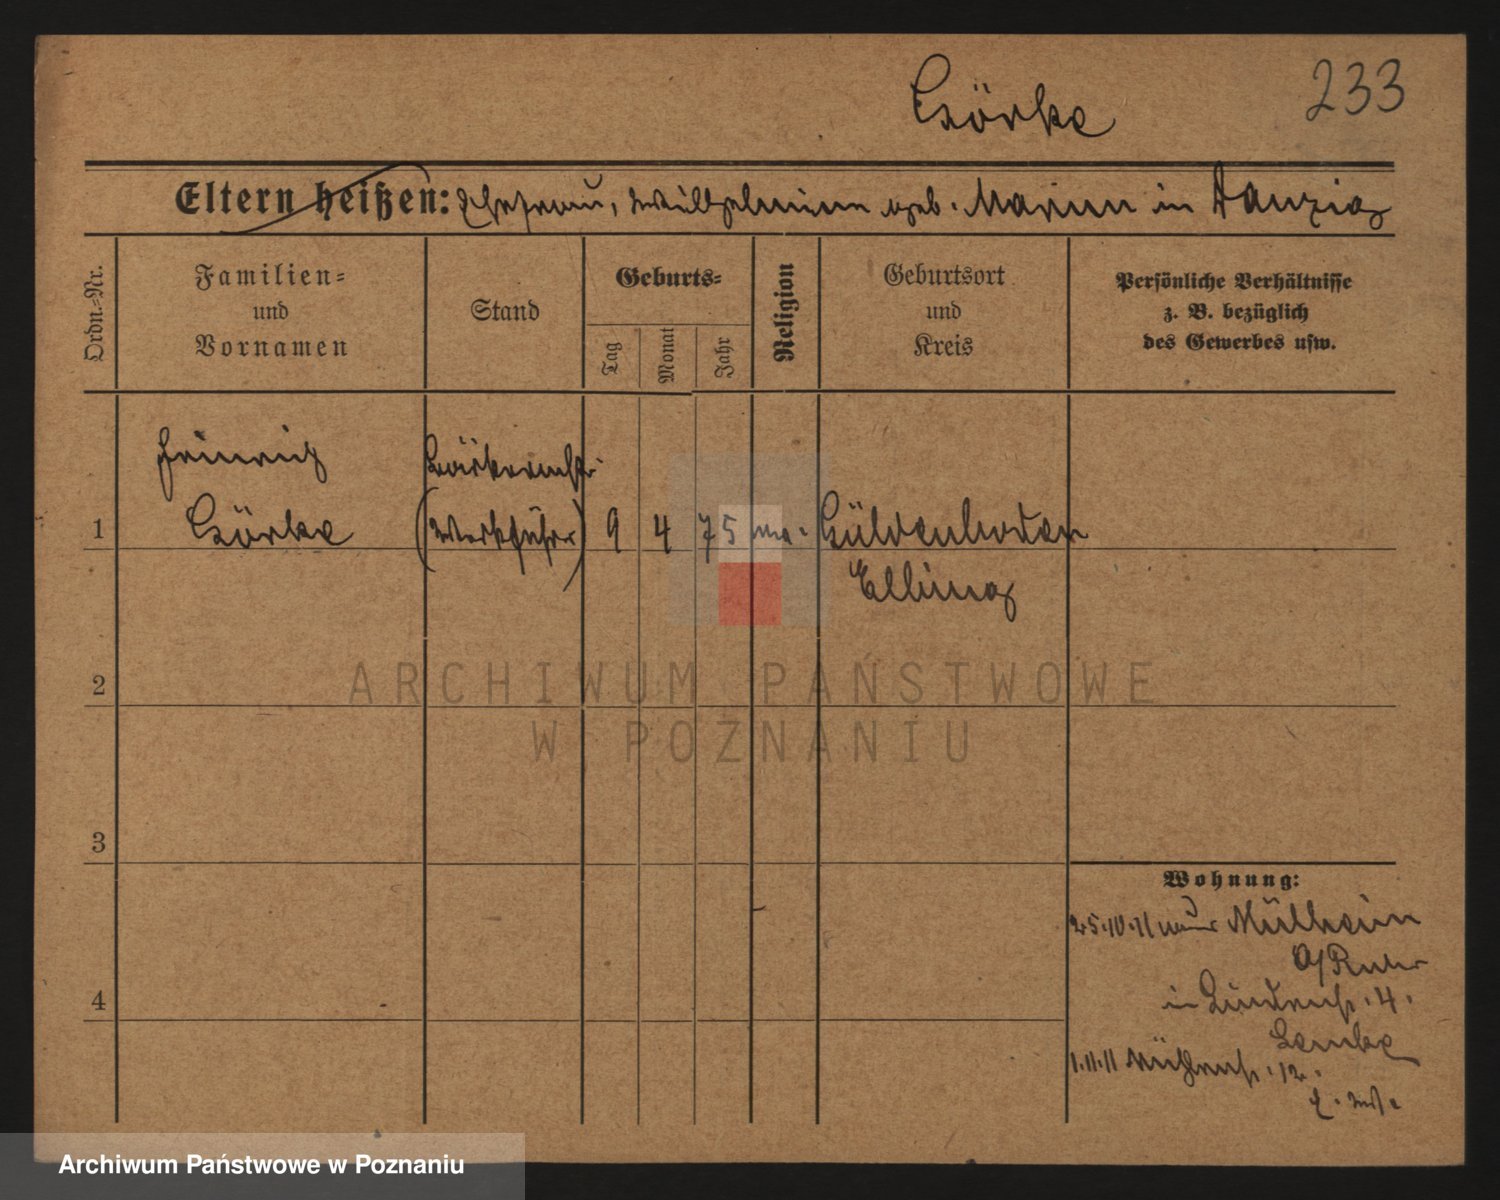 Görke
233
Eltern heißen: Ehefrau, Wilhelmine geb. in Danzig
Ordn.-Nr.
Familien-
und
Vornamen
Stand
Geburts-
Tag
Monat
Jahr
Religion
Geburtsort
und
Kreis
Persönliche Verhältnisse
z. B. bezüglich
des Gewerbes usw.
Heinrich
1 Görke
(Werkführer) 9 4 75 Güldenboden
Elbing
2
3
4
Wohnung:
25.10.11 Mülheim
a/Ruhr
in Lindenstr. 4.
Lembke
1.11.11 Mühlenstr. 12.
ARCHIWUM PAŃSTWOWE
W POZNANIU
Archiwum Państwowe w Poznaniu